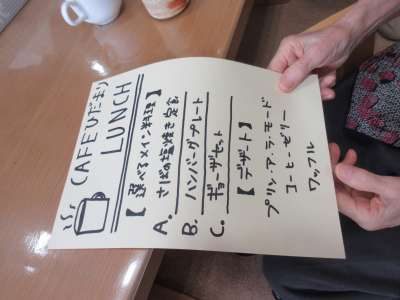 CAFEひだまり
LUNCH
【選べるメイン料理】
A. さばの塩焼き定食
B. ハンバーグプレート
C. ギョーザセット
【デザート】
プリン・ア・ラ・モード
コーヒーゼリー
ワッフル